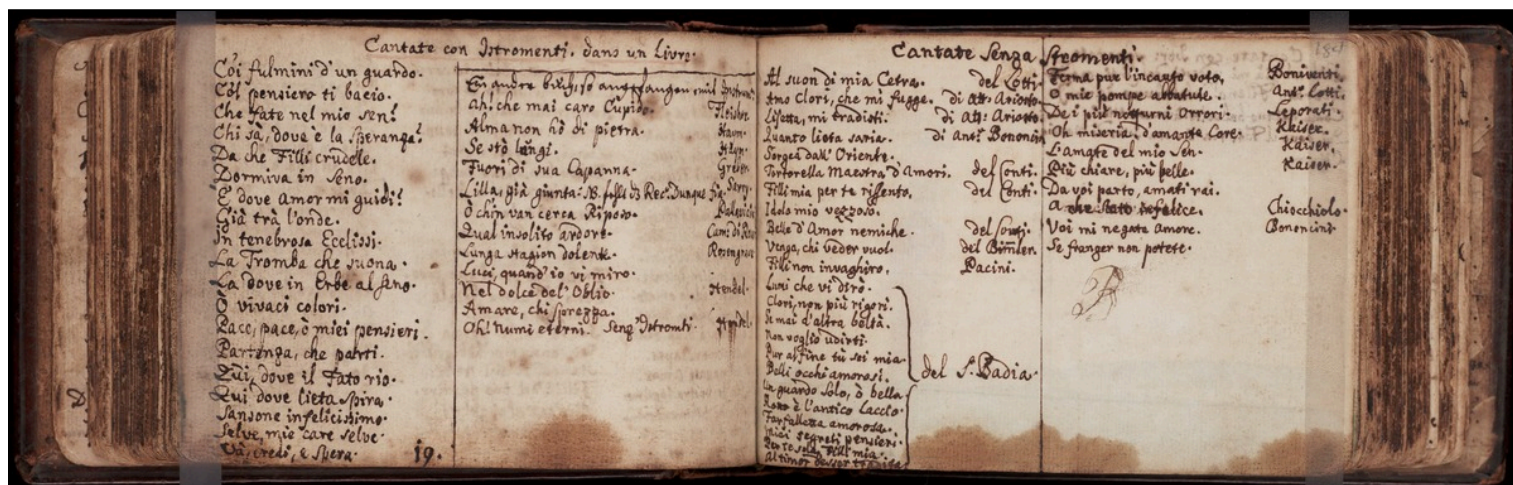 Cantate con Istromenti. dans un Livre.
Coi fulmini d'un guardo.
Col pensiero ti bacio.
Che fate nel mio sen?
Chi sà, dove è la speranza?
Da che Filli crudele.
Dormiva in seno.
E' dove amor mi guidi?
Già trà l'onde.
In tenebrosa Ecclissi.
La Tromba che suona.
La dove in Erbe al seno.
O vivaci colori.
Pace, pace, ò miei pensieri.
Partenza, che parti.
Qui, dove il Fato rio.
Qui dove lieta spira.
Sansone infelicissimo.
Selve, mie care selve.
Và, credi, e spera.
19.
Ein andre
Ah! che mai caro Cupido.
Alma non hò di pietra. Haÿn.
Se stò lungi. Haÿn.
Fuori di sua Capanna. Greber.
Lilla, già giunta. Dunque
O chin van cerca Riposo.
Qual insolito ardore.
Lunga stagion dolente. Rosengrave
Luci, quand' io vi miro.
Nel dolce del' Oblio. Hendel.
Amare, chi sprezza.
Oh! Numi eterni. Senz' Istromti. Hendel.
Cantate Senza Stromenti.
Al suon di mia Cetra. del Lotti.
Amo Clori, che mi fugge. di Att. Ariosto.
Lisetta, mi tradisti. di Att. Ariosto.
Quanto lieta saria. di Ant. Bononcin
Sorgea dall' Oriente.
Tortorella Maestra d'Amori. del Conti.
Filli mia per te risento. del Conti.
Idolo mio vezzoso.
Belle d'Amor nemiche. del Conti.
Venga, chi veder vuol. del Bimler.
Filli non invaghiro. Pacini.
Luci che vi dirò.
Clori, non più rigori.
Se mai d'altra beltà.
Non voglio udirti.
Pur al fine tù sei mia.
Belli occhi amorosi.
del S. Badia
Un guardo solo, ò bella.
Roto è l'antico Laccio.
Farfalletta amorosa.
Miei segreti pensieri.
Per te sola, Filli mia.
Al timor
Ferma pur l'incauto voto. Boniventi.
O mie pompe abbatute. Ant. Lotti.
De i più notturni Orrori. Leporati.
Oh miseria d'amante Core. Kaiser.
L'amate del mio Sen. Kaiser.
Più chiare, più belle. Kaiser.
Da voi parto, amati rai.
A che stato infelice. Chiocchiolo.
Voi mi negate Amore. Bononcini
Se franger non potete.